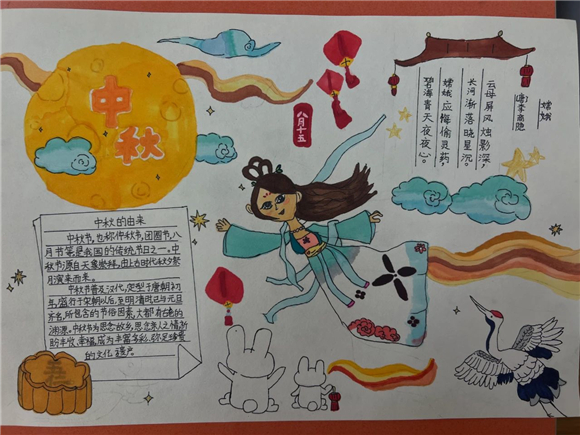 中秋
八月十五
嫦娥
(唐)李商隐
云母屏风烛影深，
长河渐落晓星沉。
嫦娥应悔偷灵药，
碧海青天夜夜心。
中秋的由来
中秋节，也称仲秋节，团圆节，八
月节等是我国的传统节日之一。中
秋节源自天象崇拜，由上古时代秋夕祭
月演变而来。
中秋节普及汉代，定型于唐朝初
年，盛行于宋朝以后，至明清时已与元旦
齐名，所包含的节俗因素，大都有古老的
渊源。中秋节为思念故乡，思念亲人之情，祈
盼丰收、幸福，成为丰富多彩、弥足珍贵
的文化遗产